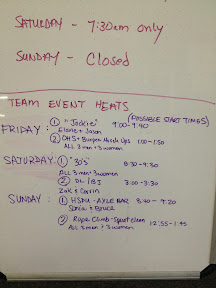 SATURDAY - 7:30am only
SUNDAY - Closed
TEAM EVENT HEATS
(POSSIBLE START TIMES)
FRIDAY: ① "Jackie" 9:00-9:40
Elaine + Jason
② OHS + Burpee Muck Ups 1:00-1:50
ALL 3 men + 3 women
SATURDAY: ① "30's" 8:30-9:30
ALL 3 MEN + 3 women
② DL / BJ 3:00-3:30
Zak + Corrin
SUNDAY: ① HSPU - AXLE BAR 8:40-9:20
Sonia + Bruce
② Rope Climb - Squat clean 12:55-1:45
ALL 3 men + 3 women